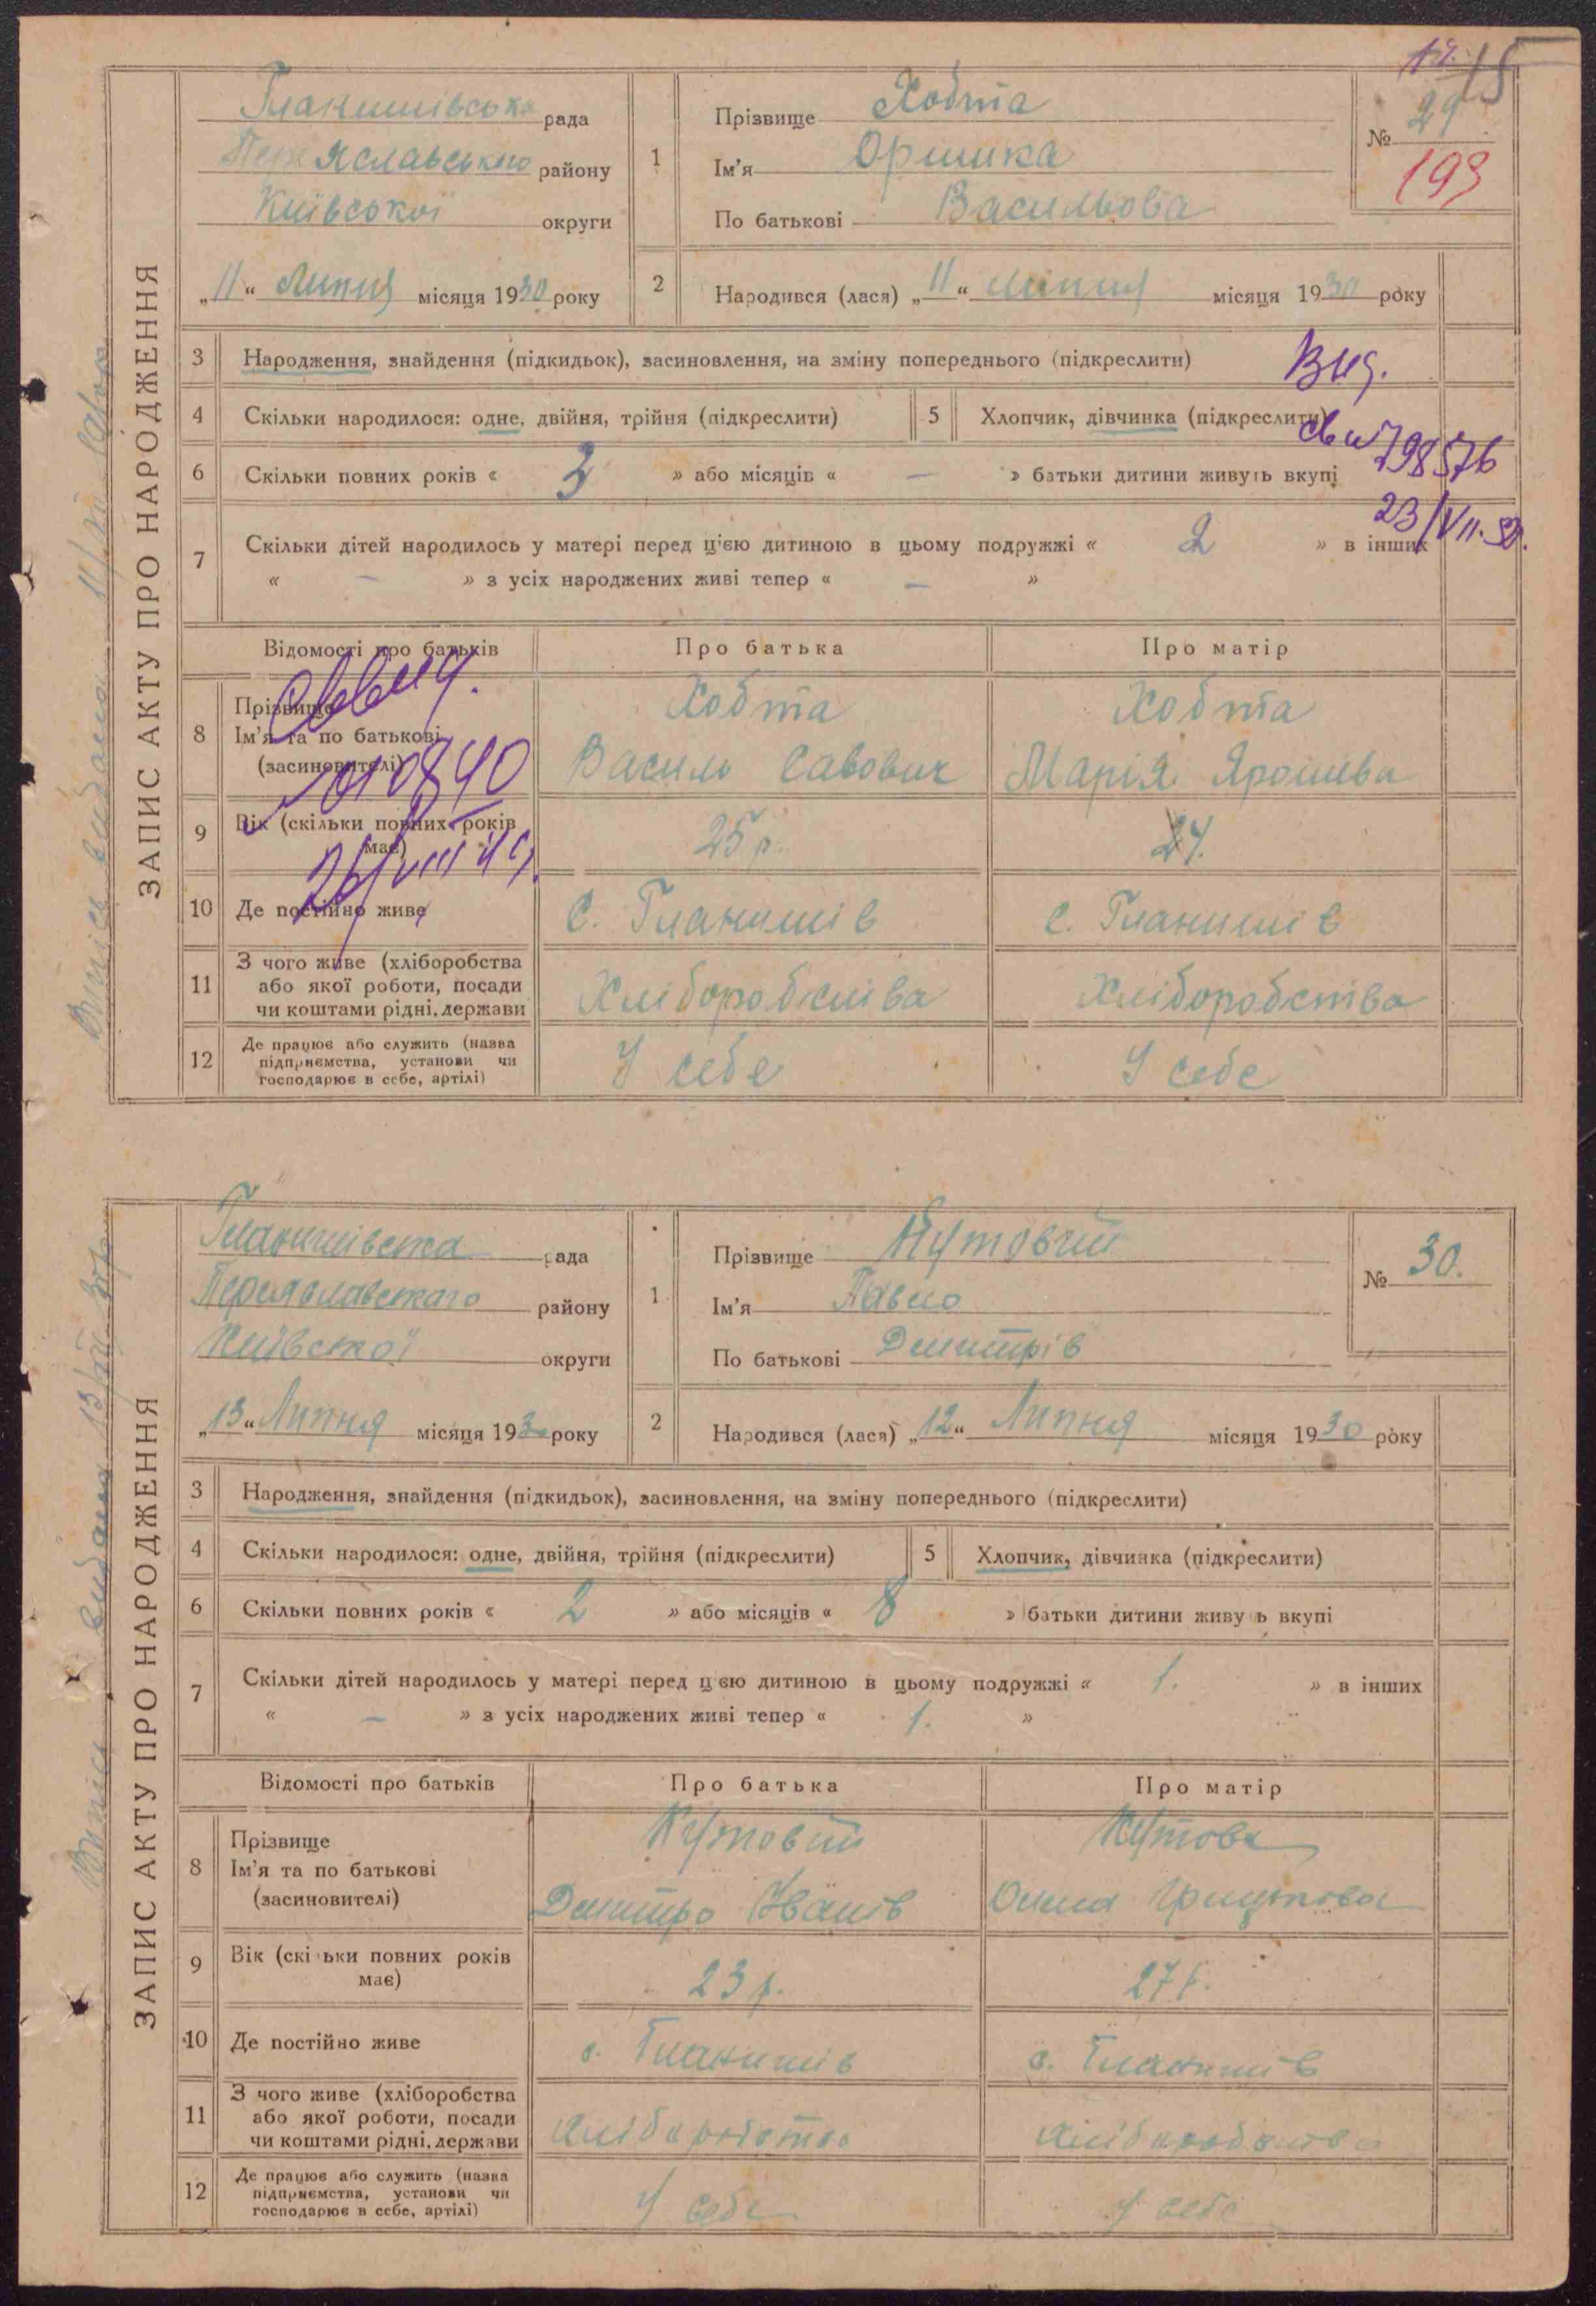 15
ЗАПИС АКТУ ПРО НАРОДЖЕННЯ
Гланишівська рада
Переяславського району
Київської округи
„11“ Липня місяця 1930 року
1
Прізвище Хобта
Ім'я Оришка
По батькові Васильова
№ 29
193
2
Народився (лася) „11“ Липня місяця 1930 року
3 Народження, знайдення (підкидьок), засиновлення, на зміну попереднього (підкреслити)
Вид.
4 Скільки народилося: одне, двійня, трійня (підкреслити)
5 Хлопчик, дівчинка (підкреслити)
798576
6 Скільки повних років « 3 » або місяців « – » батьки дитини живуть вкупі
23/VII.
7 Скільки дітей народилось у матері перед ц'єю дитиною в цьому подружжі « 2 » в інших
« – » з усіх народжених живі тепер « – »
Відомості про батьків
Про батька
Про матір
8 Прізвище
Ім'я та по батькові
(засиновителі)
Хобта
Василь Савович
Хобта
Марія
010840
9 Вік (скільки повних років
має)
25 р.
24.
26/VIII 49
10 Де постійно живе
С. Гланишів
с. Гланишів
11 З чого живе (хліборобства
або якої роботи, посади
чи коштами рідні, держави
Хліборобства
Хліборобства
12 Де працює або служить (назва
підприємства, установи чи
господарює в себе, артілі)
У себе
У себе
ЗАПИС АКТУ ПРО НАРОДЖЕННЯ
Гланишівська рада
Переяславського району
Київської округи
„13“ Липня місяця 1930 року
1
Прізвище Кутовий
Ім'я Павло
По батькові Дмитрів
№ 30.
2
Народився (лася) „12“ Липня місяця 1930 року
3 Народження, знайдення (підкидьок), засиновлення, на зміну попереднього (підкреслити)
4 Скільки народилося: одне, двійня, трійня (підкреслити)
5 Хлопчик, дівчинка (підкреслити)
6 Скільки повних років « 2 » або місяців « 8 » батьки дитини живуть вкупі
7 Скільки дітей народилось у матері перед ц'єю дитиною в цьому подружжі « 1. » в інших
« – » з усіх народжених живі тепер « 1. »
Відомості про батьків
Про батька
Про матір
8 Прізвище
Ім'я та по батькові
(засиновителі)
Кутовий
Дмитро Іванів
Кутова
9 Вік (скільки повних років
має)
23 р.
27 р.
10 Де постійно живе
с. Гланишів
с. Гланишів
11 З чого живе (хліборобства
або якої роботи, посади
чи коштами рідні, держави
Хліборобство
Хліборобство
12 Де працює або служить (назва
підприємства, установи чи
господарює в себе, артілі)
У себе
У себе